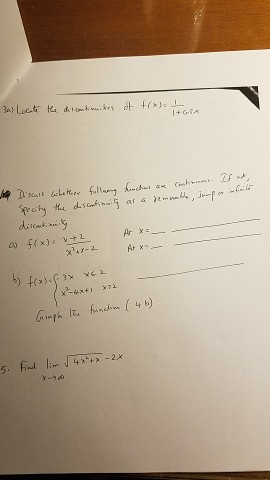 3a) Locate the discontinuities of f(x) = 1/(1+cos x)
Discuss whether following functions are continuous. If not,
specify the discontinuity as a removable, jump or infinite
discontinuity
a) f(x) = (x+2)/(x²+x-2) At x = __ ________
At x = __ ________
b) f(x) = { -3x x<2 ________
x²-4x+1 x>2
Graph the function (4b)
5. Find lim x→∞ √(4x²+x) - 2x